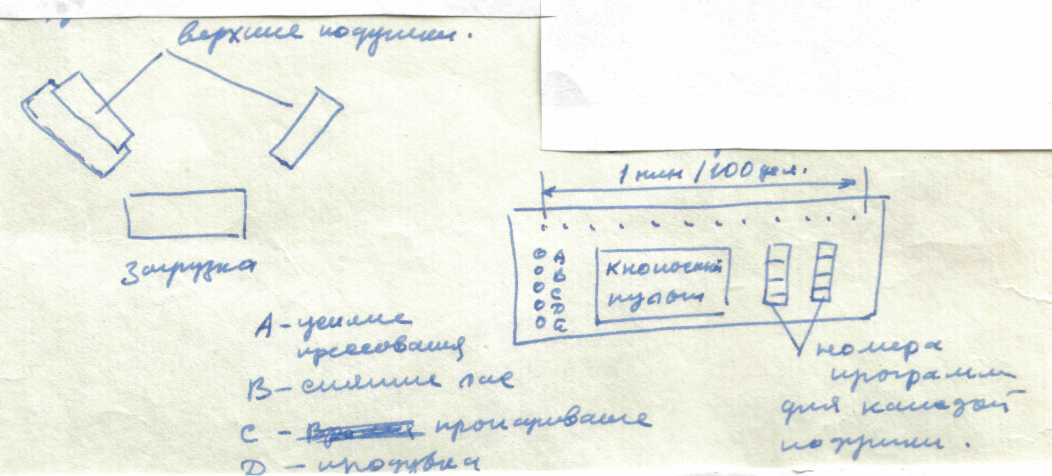 верхние подушки.
1 мин / 100 дел.
A
B
C
D
E
Кнопочный
пульт
Загрузка
A - усилие
прессования
B - снятие
C - пропаривание
D - продувка
номера
программ
для каждой
подушки.